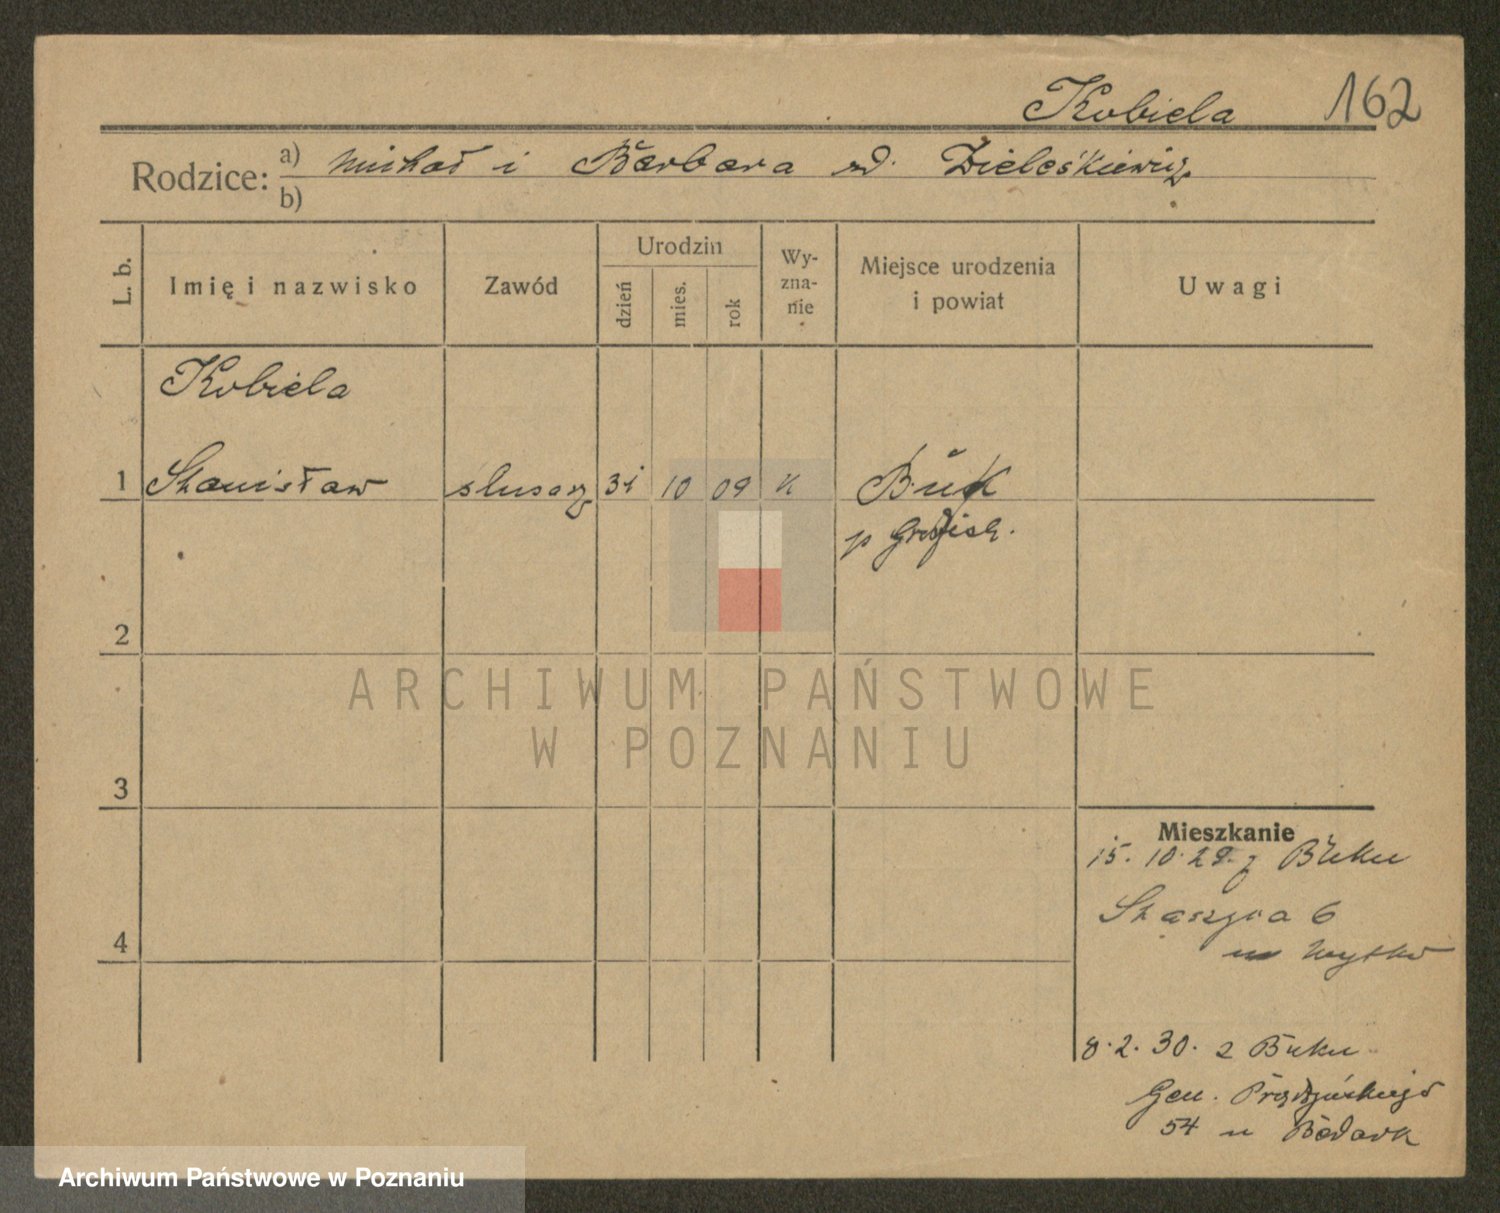 Kobiela 162
Rodzice: a) Michał i Barbara zd.
b)
L. b.
Imię i nazwisko
Zawód
Urodzin
dzień
mies.
rok
Wy-
zna-
nie
Miejsce urodzenia
i powiat
Uwagi
Kobiela
1 Stanisław slusarz 31 10 09 k Buk
p Grodzisk.
2
3
4
Mieszkanie
15. 10. 29. z Buku
Staszyca 6
8. 2. 30. z Buku
Gen. Prądzyńskiego
54 u
ARCHIWUM PAŃSTWOWE
W POZNANIU
Archiwum Państwowe w Poznaniu